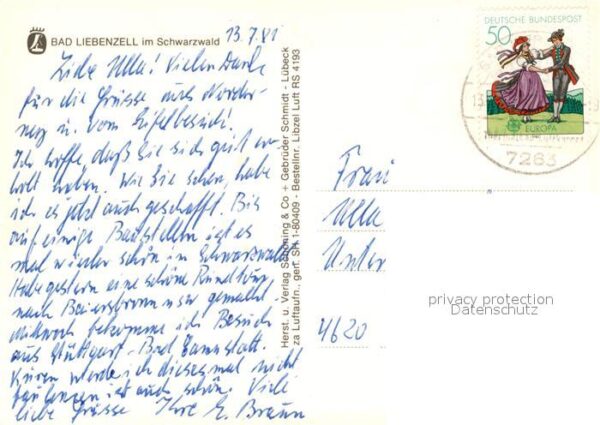 BAD LIEBENZELL im Schwarzwald
13.7.81
Liebe Ulla! Vielen Dank
für die Grüsse aus Norder-
ney u. vom Eifelbesuch!
Ich hoffe, daß Sie sich gut er-
holt haben. Wie Sie sehen, habe
ich es jetzt auch geschafft. Bis
auf einige Baustellen ist es
mal wieder schön im Schwarzwald
Habe gestern eine schöne Rundtour
nach Baiersbronn usw gemacht.
Mittwoch bekomme ich Besuch
aus Stuttgart-Bad Cannstatt.
Kuren werde ich diesesmal nicht
faulenzen ist auch schön. Viele
liebe Grüsse Ihre E. Braun
Herst. u. Verlag Schöning & Co + Gebrüder Schmidt - Lübeck
za Luftaufn., gen. SH 1-80409 - Bestellnr. Libzel Luft RS 4193
DEUTSCHE BUNDESPOST
50
EUROPA
7263
Frau
Ulla
Unter
4620
privacy protection
Datenschutz